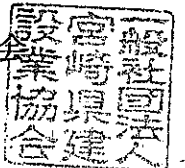 一般社団法人
宮崎県建
設業協会